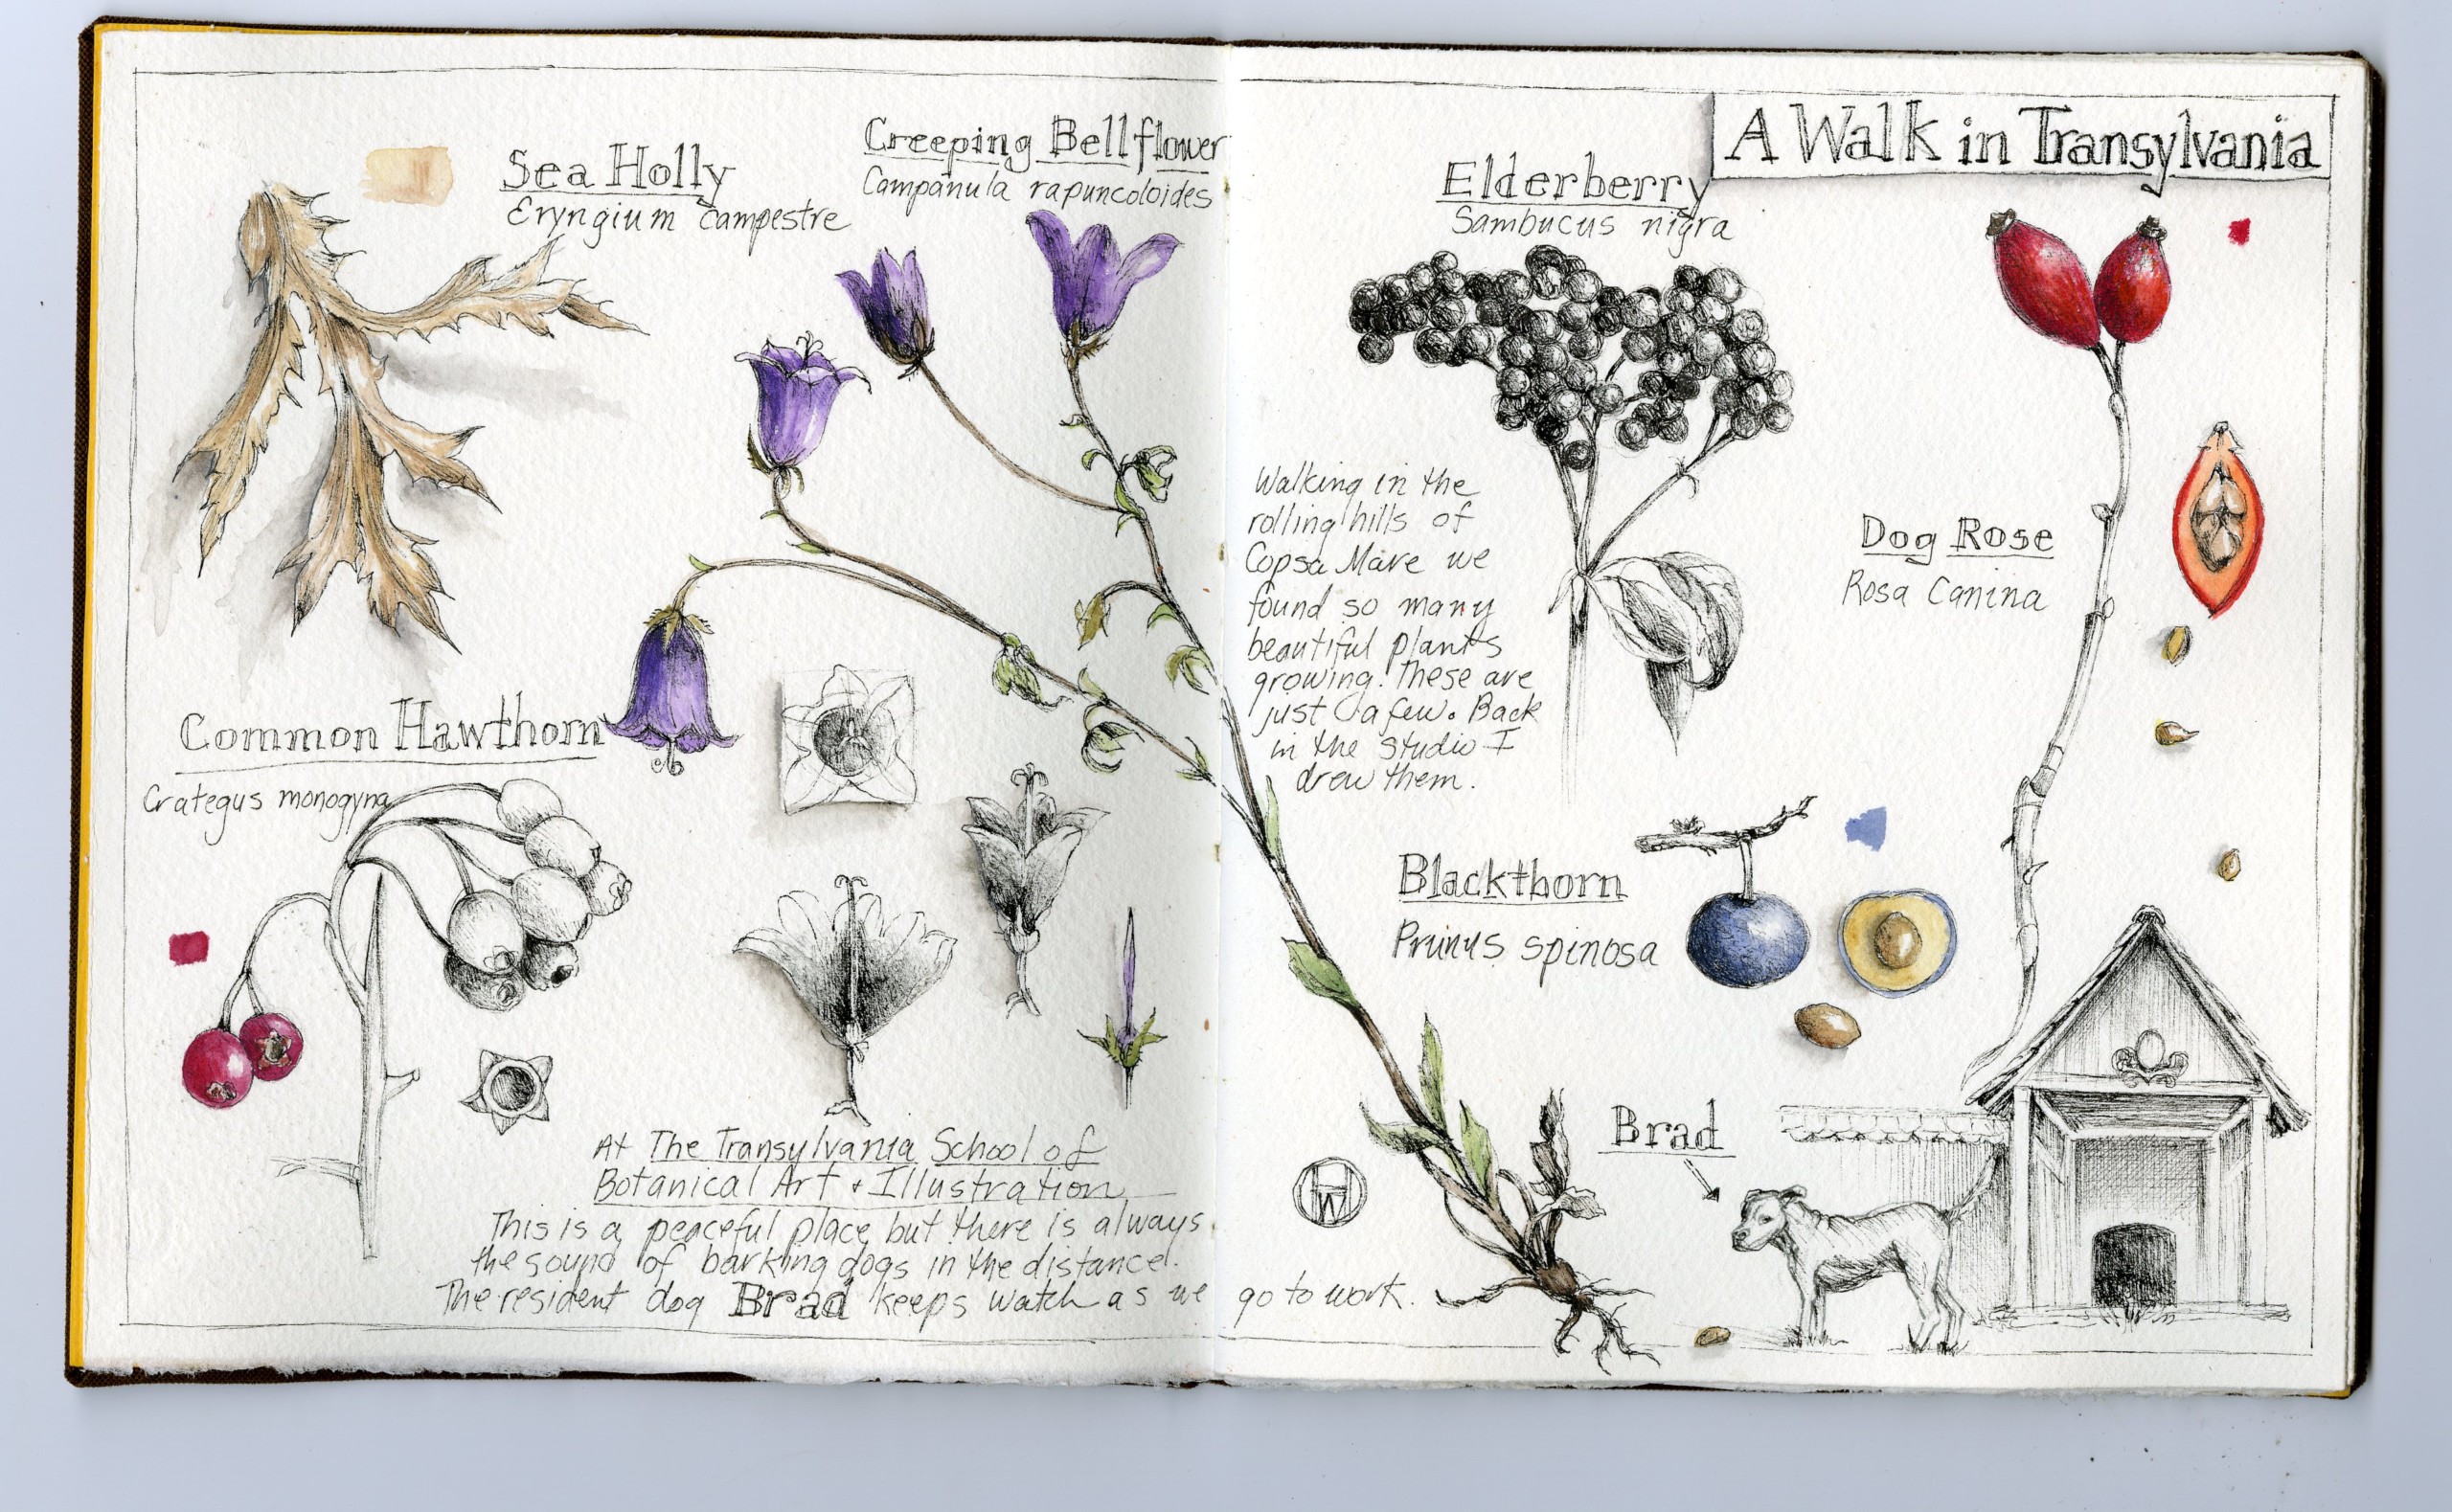 Sea Holly
Eryngium campestre
Creeping Bellflower
Campanula rapuncoloides
Common Hawthorn
Crategus monogyna
At The Transylvania School of
Botanical Art + Illustration
This is a peaceful place but there is always
the sound of barking dogs in the distance.
The resident dog Brad keeps watch as we go to work.
A Walk in Transylvania
Elderberry
Sambucus nigra
Walking in the
rolling hills of
Copsa Mare we
found so many
beautiful plants
growing. These are
just a few. Back
in the studio I
drew them.
Dog Rose
Rosa Canina
Blackthorn
Prunus spinosa
Brad